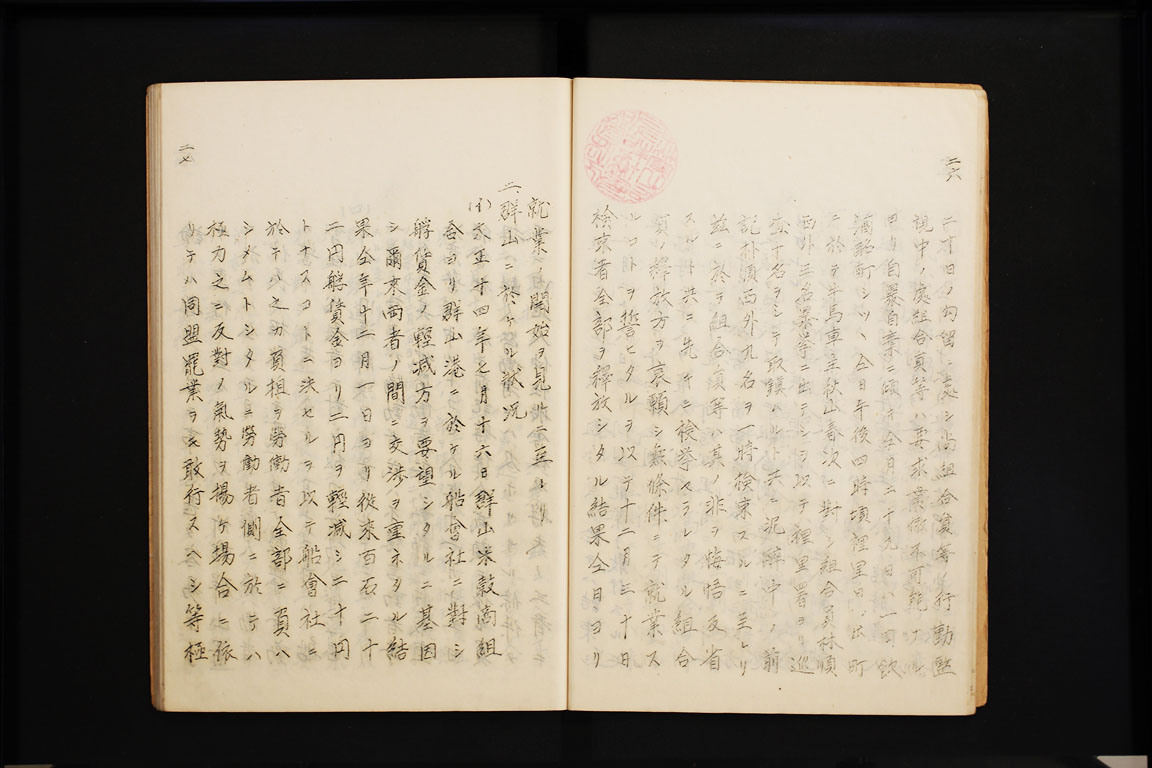 二六
二十日ノ拘留ニ處シ尚組合員等ノ行動監
視中ノ處組合員等ハ要求貫徹不可能ナル
ヨリ自暴自棄ニ傾キ仝月二十九日ハ一同飲
酒酩町シツヽ仝日午後四時頃裡里日ノ出町
ニ於テ牛馬車主秋山春次ニ對シ組合員林順
西外三名暴挙ニ出テシヲ以テ裡里署ヨリ巡
査十名ヲシテ取鎮ハルト共ニ泥醉中ノ前
記朴順西外九名ヲ一時検束スルニ至レリ
茲ニ於テ組合員等ハ其ノ非ヲ悔悟反省
スルト共ニ先キニ検挙セラレタル組合
員ノ釋放方ヲ哀願シ無條件ニテ就業ス
ルコトヲ誓ヒタルヲ以テ十二月三十日
検束者全部ヲ釋放シタル結果仝日ヨリ
二七
就業ノ開始ヲ見ルニ至レリ
二、群山ニ於ケル状况
(イ)大正十四年七月十六日群山米穀商組
合ヨリ群山港ニ於ケル船會社ニ對シ
艀賃金ノ輕減方ヲ要望シタルニ基因
シ爾來両者ノ間ニ交渉ヲ重ネタル結
果仝年十二月一日ヨリ從來百石二十
二円艀賃金ヨリ二円ヲ輕減シ二十円
トナスコトニ決セルヲ以テ船會社ニ
於テハ之カ負担ヲ勞働者全部ニ負ハ
シメムトシタルニ勞働者側ニ於テハ
極力之ニ反對ノ氣勢ヲ揚ケ場合ニ依
リテハ同盟罷業ヲモ敢行スヘシ等極